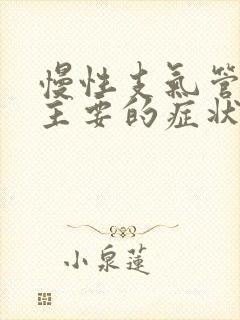 慢性支氣管
主要的症狀
小泉蓮